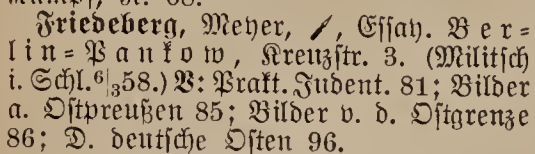 Friedeberg, Meyer, /, Essay. Ber=
lin=Pankow, Kreuzstr. 3. (Militsch
i. Schl. 6/3 58.) V: Prakt. Judent. 81; Bilder
a. Ostpreußen 85; Bilder v. d. Ostgrenze
86; D. deutsche Osten 96.